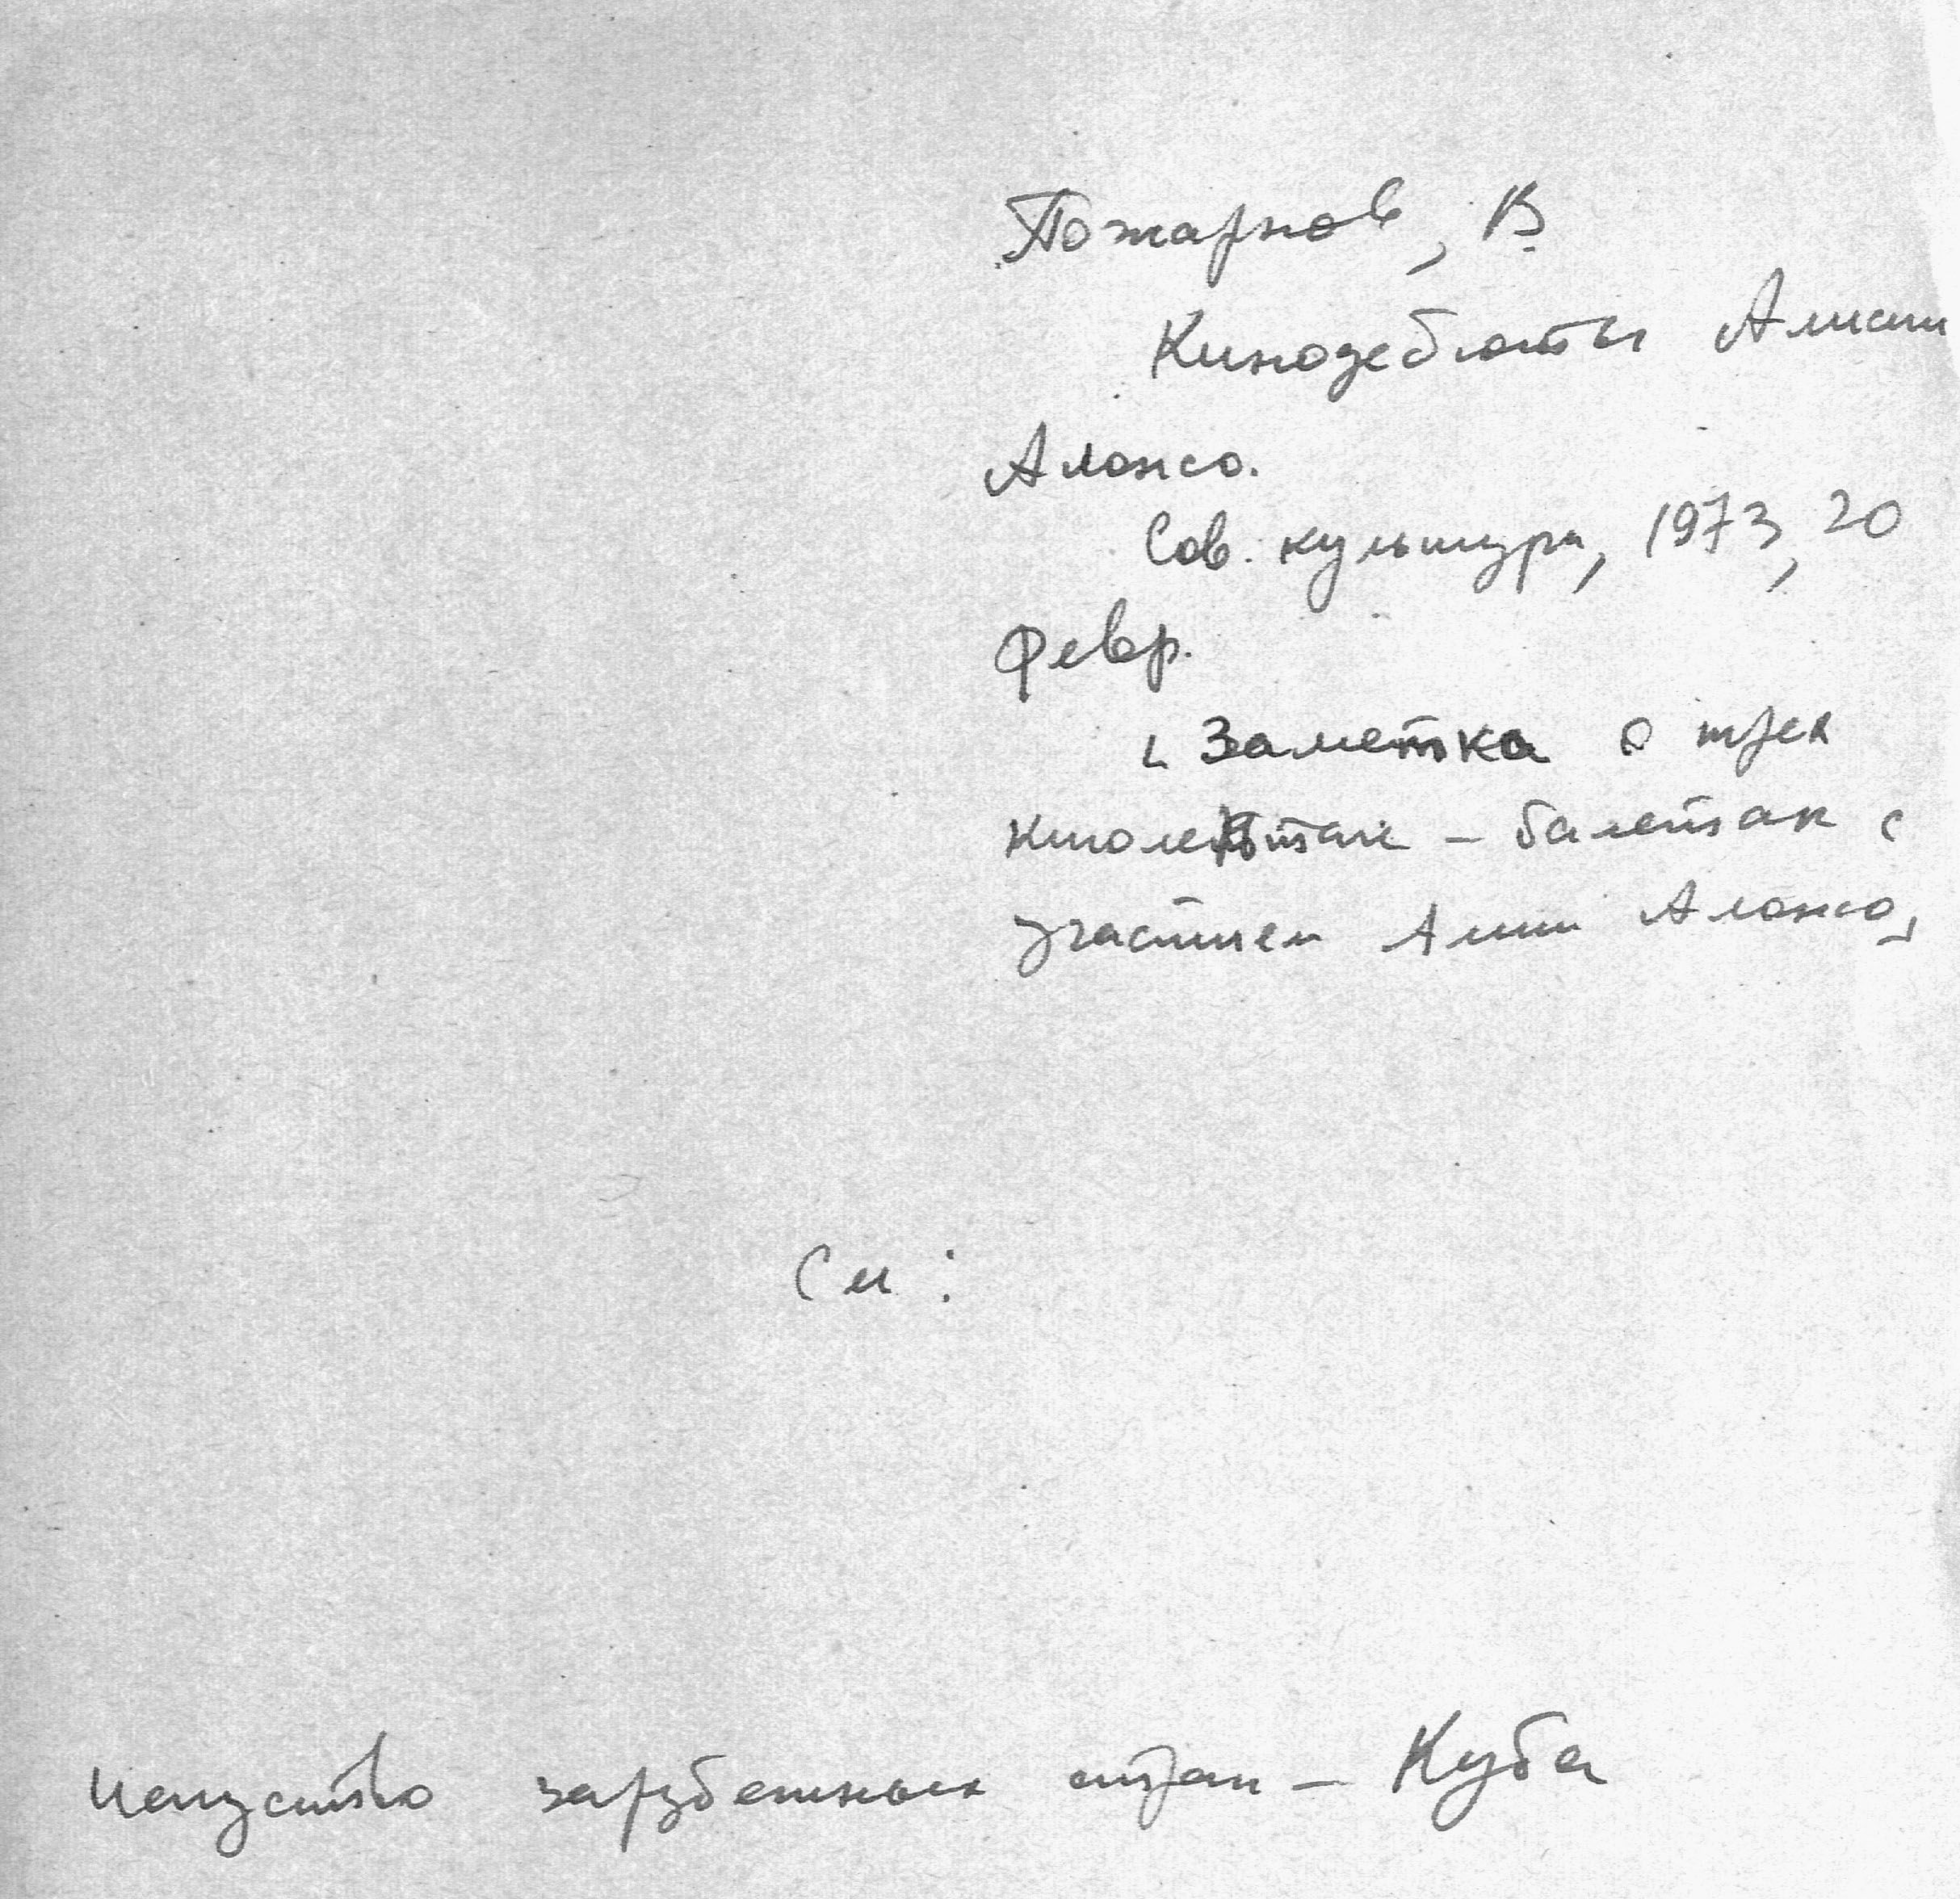 Пожарнов, В.
Кинодебюты Алисии
Алонсо.
Сов. культура, 1973, 20
февр.
[Заметка о трех
кинолентах – балетах с
участием Алиш Алонсо]
См:
Искусство зарубежных стран – Куба